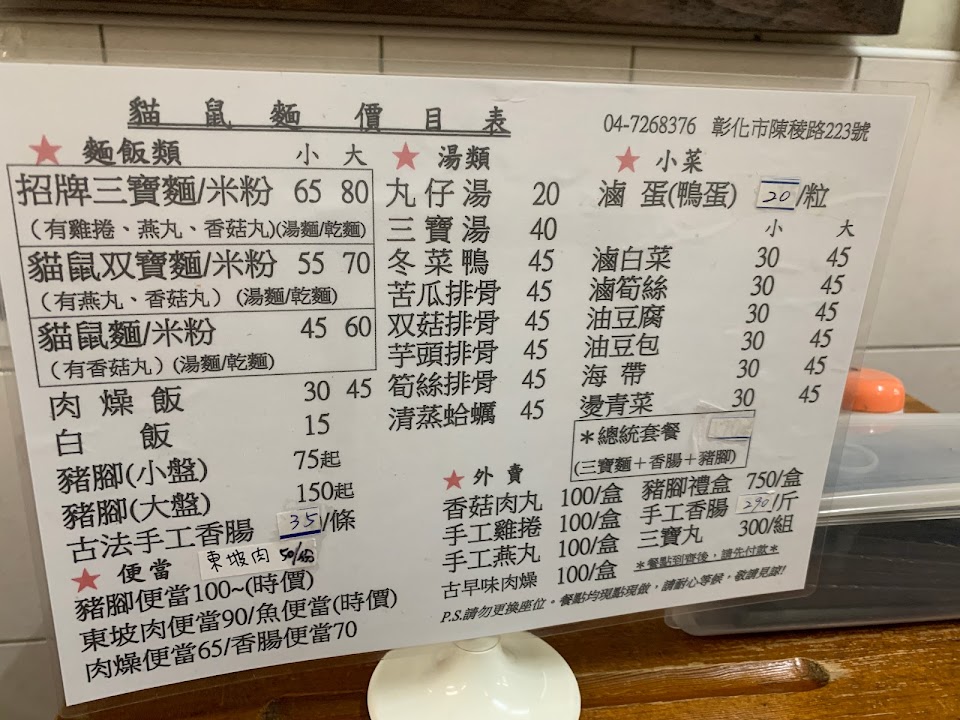 貓鼠麵價目表
04-7268376 彰化市陳稜路223號
★麵飯類 小 大
招牌三寶麵/米粉 65 80
(有雞捲、燕丸、香菇丸)(湯麵/乾麵)
貓鼠双寶麵/米粉 55 70
(有燕丸、香菇丸)(湯麵/乾麵)
貓鼠麵/米粉 45 60
(有香菇丸)(湯麵/乾麵)
肉燥飯 30 45
白飯 15
豬腳(小盤) 75起
豬腳(大盤) 150起
古法手工香腸 35/條
東坡肉 50/份
★便當
豬腳便當100~(時價)
東坡肉便當90/魚便當(時價)
肉燥便當65/香腸便當70
★湯類
丸仔湯 20
三寶湯 40
冬菜鴨 45
苦瓜排骨 45
双菇排骨 45
芋頭排骨 45
筍絲排骨 45
清蒸蛤蠣 45
★小菜
滷蛋(鴨蛋) 20/粒
小 大
滷白菜 30 45
滷筍絲 30 45
油豆腐 30 45
油豆包 30 45
海帶 30 45
燙青菜 30 45
＊總統套餐
(三寶麵＋香腸＋豬腳)
★外賣
香菇肉丸 100/盒 豬腳禮盒 750/盒
手工雞捲 100/盒 手工香腸 290/斤
手工燕丸 100/盒 三寶丸 300/組
古早味肉燥 100/盒 ＊餐點到齊後，請先付款＊
P.S.請勿更換座位。餐點均現點現做，請耐心等候，敬請見諒!